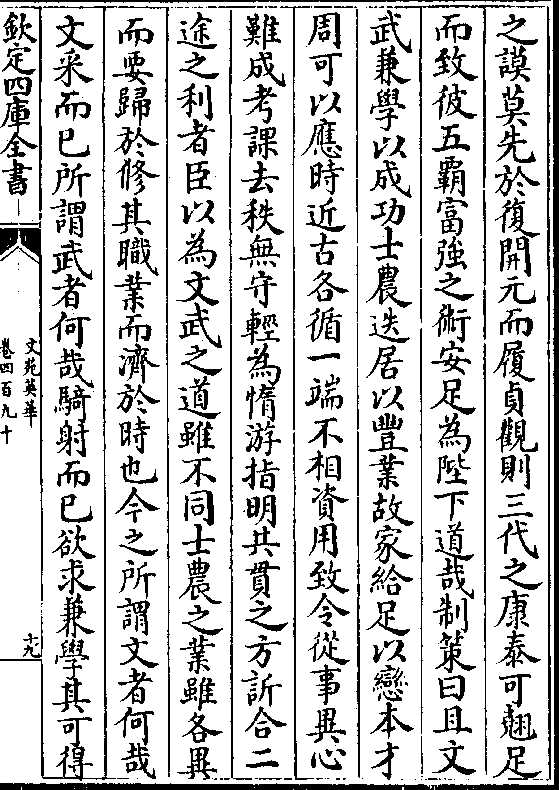 之謨莫先於復開元而履貞觀則三代之康泰可翹足
而致彼五霸富強之術安足為陛下道哉制策曰且文
武兼學以成功士農迭居以豐業故家給足以戀本才
周可以應時近古各循一端不相資用致令從事異心
難成考課去秩無守輕為惰游指明共貫之方訢合二
途之利者臣以為文武之道雖不同士農之業雖各異
而要歸於修其職業而濟於時也今之所謂文者何哉
文采而已所謂武者何哉騎射而已欲求兼學其可得
欽定四庫全書
文苑英華
卷四百九十
十九